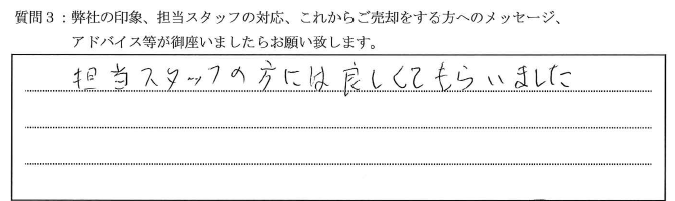 質問３：弊社の印象、担当スタッフの対応、これからご売却をする方へのメッセージ、
アドバイス等が御座いましたらお願い致します。
担当スタッフの方には良しくてもらいました